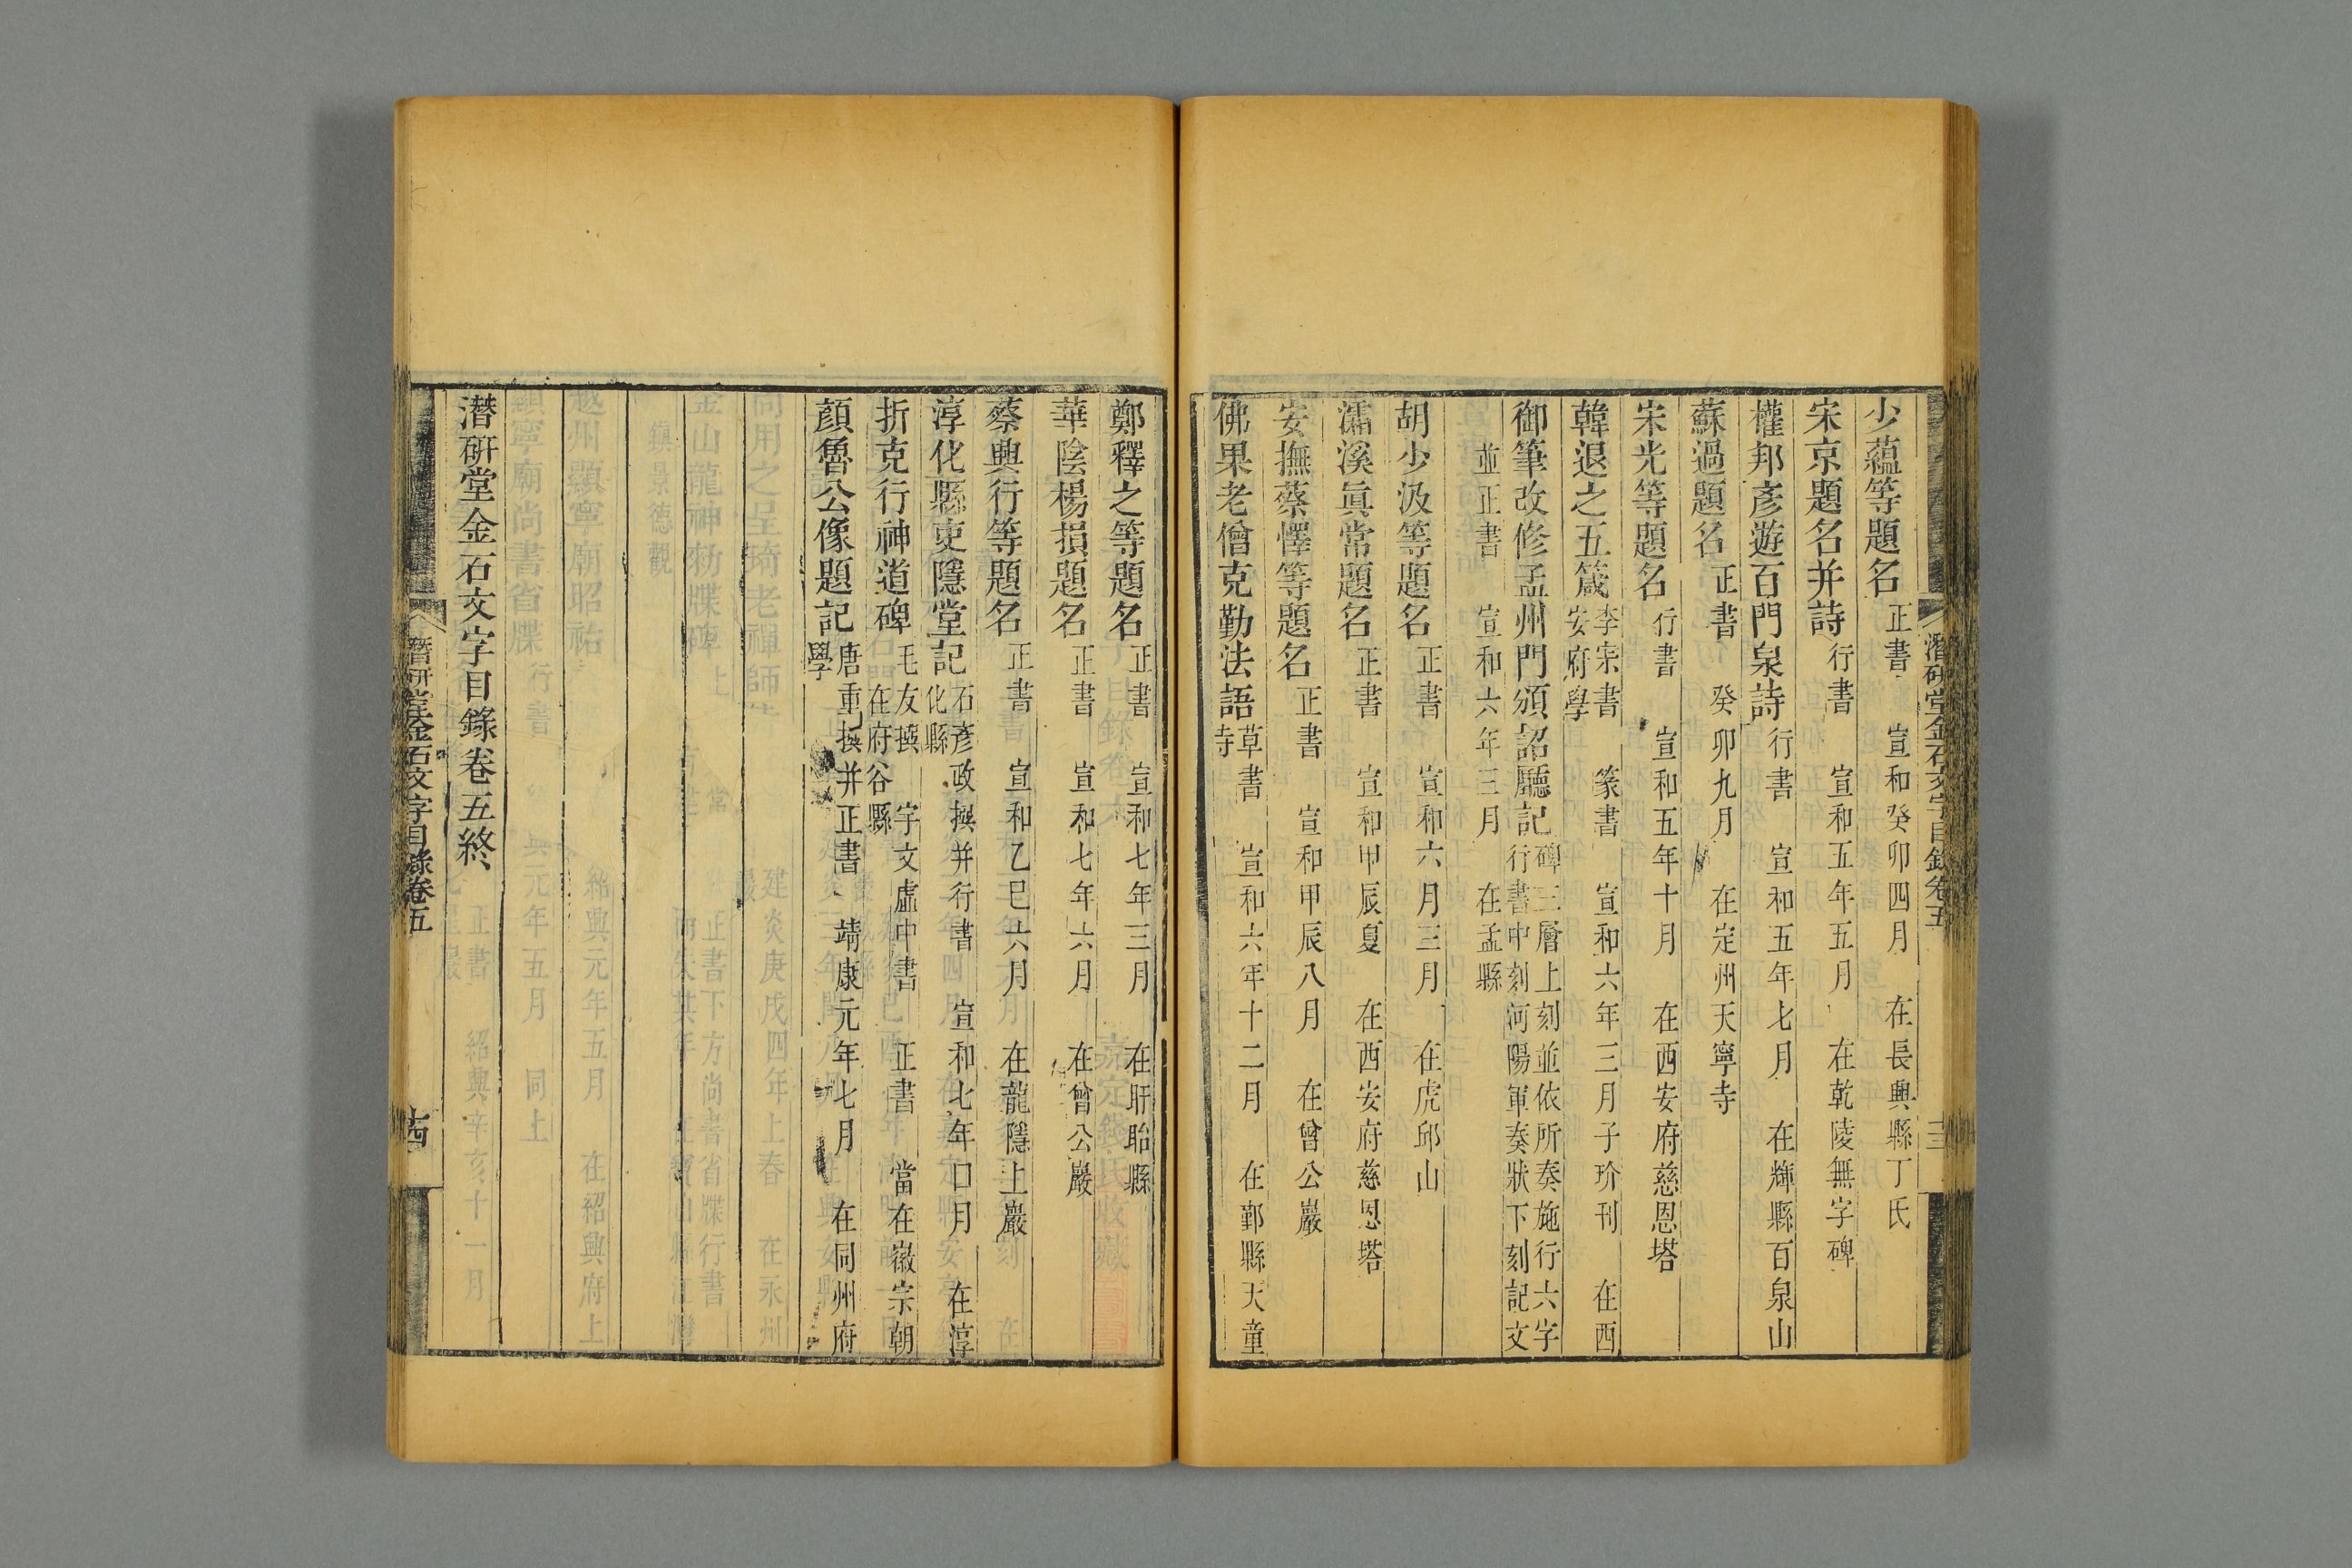 潛研堂金石文字目錄卷五
十三
少蘊等題名 正書 宣和癸卯四月 在長興縣丁氏
宋京題名并詩 行書 宣和五年五月 在乾陵無字碑
權邦彥遊百門泉詩 行書 宣和五年七月 在輝縣百泉山
蘇過題名 正書 癸卯九月 在定州天寧寺
宋光等題名 行書 宣和五年十月 在西安府慈恩塔
韓退之五箴 李宗書 篆書 宣和六年三月子玠刊 在西
安府學
御筆改修孟州門頒詔廳記 碑三層上刻並依所奏施行六字
行書中刻河陽軍奏狀下刻記文
並正書 宣和六年三月 在孟縣
胡少汲等題名 正書 宣和六月三月 在虎邱山
潏溪眞常題名 正書 宣和甲辰夏 在西安府慈恩塔
安撫蔡懌等題名 正書 宣和甲辰八月 在曾公巖
佛果老僧克勤法語 草書 宣和六年十二月 在鄞縣天童
寺
鄭釋之等題名 正書 宣和七年三月 在盱眙縣
華陰楊損題名 正書 宣和七年六月 在曾公巖
蔡興行等題名 正書 宣和乙巳六月 在龍隱上巖
淳化縣吏隱堂記 石彥政撰并行書 宣和七年口月 在淳
化縣
折克行神道碑 毛友撰 宇文虛中書 正書 當在徽宗朝
在府谷縣
顏魯公像題記 唐重撰并正書 靖康元年七月 在同州府
學
潛研堂金石文字目錄卷五終
潛研堂金石文字目錄卷五
十四